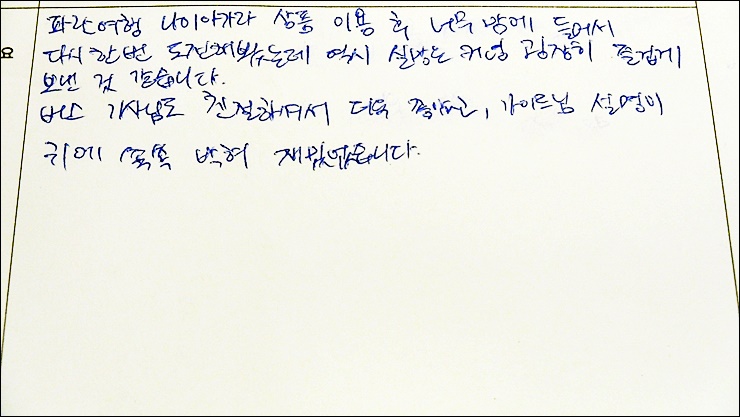 파란여행 나이아가라 상품 이용 후 너무 맘에 들어서
다시 한번 도전해봤는데 역시 실망은 커녕 굉장히 즐겁게
보낸 것 같습니다.
버스 기사님도 친절하셔서 더욱 좋았고, 가이드님 설명이
귀에 쏙쏙 박혀 재밌었습니다.
요